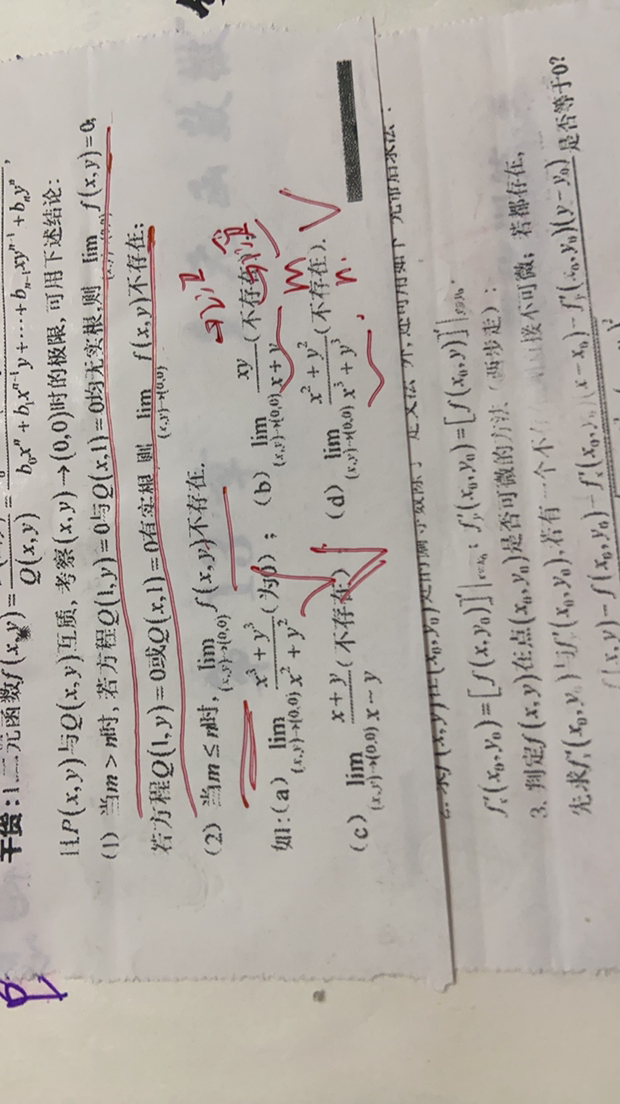 干货:
二元函数f(x,y)= /Q(x,y) = /b₀xⁿ+b₁xⁿ⁻¹y+···+bₙ₋₁xyⁿ⁻¹+bₙyⁿ,
且P(x,y)与Q(x,y)互质,考察(x,y)→(0,0)时的极限,可用下述结论:
(1) 当m>n时,若方程Q(1,y)=0与Q(x,1)=0均无实根,则 lim f(x,y)=0;
若方程Q(1,y)=0或Q(x,1)=0有实根,则 lim_{(x,y)→(0,0)} f(x,y)不存在;
(2) 当m≤n时, lim_{(x,y)→(0,0)} f(x,y)不存在.
如:(a) lim_{(x,y)→(0,0)} (x³+y³)/(x²+y²) (为0); (b) lim_{(x,y)→(0,0)} xy/(x+y) (不存在)
(c) lim_{(x,y)→(0,0)} (x+y)/(x-y) (不存在) (d) lim_{(x,y)→(0,0)} (x²+y²)/(x³+y³) (不存在).
m
n.
f(x,y)在(x₀,y₀)处的偏导数除了定义法外,还可用如下
f'ₓ(x₀,y₀)=[f(x,y₀)]'|ₓ₌ₓ₀; f'ᵧ(x₀,y₀)=[f(x₀,y)]'|ᵧ₌ᵧ₀.
3. 判定f(x,y)在点(x₀,y₀)是否可微的方法(两步走):
先求f'ₓ(x₀,y₀)与f'ᵧ(x₀,y₀),若有一个不 接不可微;若都存在,
f(x,y)-f(x₀,y₀)-f'ₓ(x₀,y₀)(x-x₀)-f'ᵧ(x₀,y₀)(y-y₀) 是否等于0?